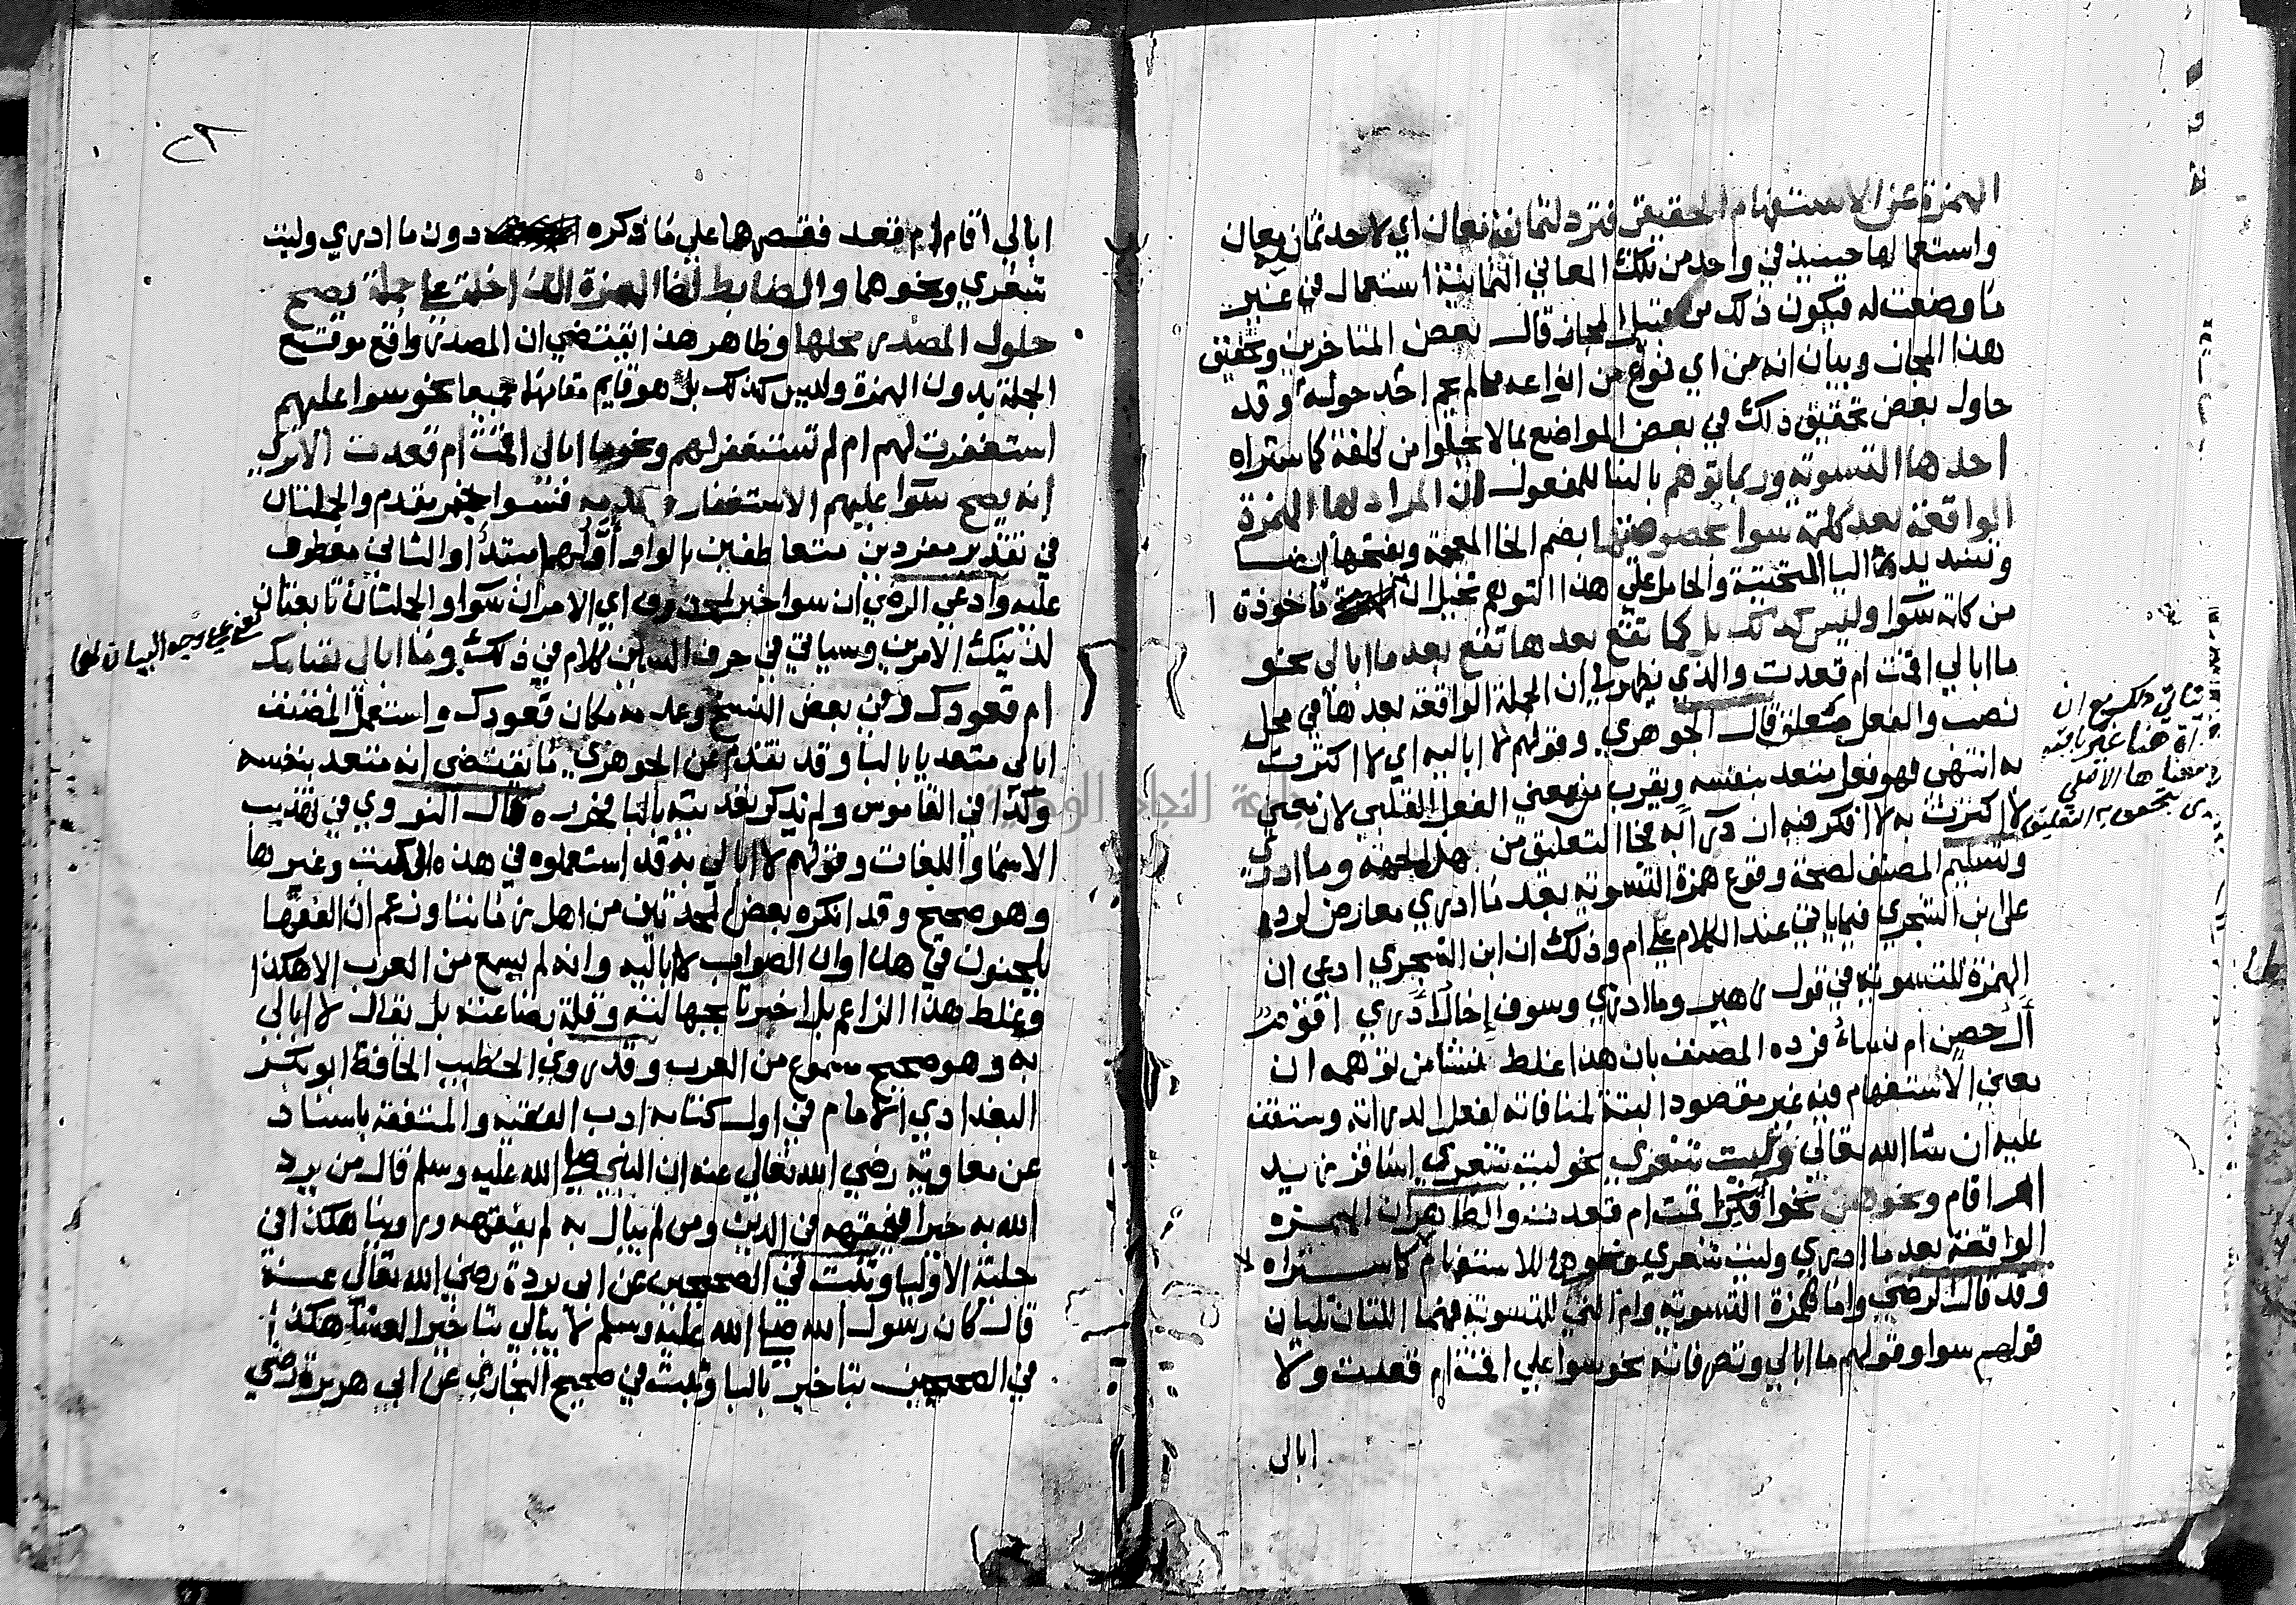 الهمزة عن الاستفهام الحقيقي فترد لثمانية معان اي لاحد ثمان معان
واستعمالها حينيذ في واحد من تلك المعاني الثمانية استعمال في غير
ما وضعت له فيكون ذلك من قبيل المجاز قال بعض المتاخرين وتحقيق
هذا المجاز وبيان انه من اي نوع من انواعه مما لم يحم احد حوله وقد
حاول بعض تحقيق ذلك في بعض المواضع بما لا يخلوا من كلفة كما ستراه
احدها التسوية وربما توهم بالبنا للمفعول ان المراد بها الهمزة
الواقعة بعد كلمة سوا بخصوصها بضم الخا المعجمة وبفتحها ايضا
وتشديد اليا التحتية والحامل على هذا التوهم تخيل ان ماخوذة
من كلمة سوا وليس كذلك بل كما تقع بعدها تقع بعد ما ابالي نحو
ما ابالي اقمت ام قعدت والذي يظهر لي ان الجملة الواقعة بعدها في محل
نصب والفعل متعلق قال الجوهري وقولهم لا اباليه اي لا اكترث
به انتهى فهو فعل متعد بنفسه ويقرب من معني الفعل القلبي لان معني
لا اكترث به لا افكر فيه ان التعليق من هذه الجهة وما ادري
وتسليم المصنف لصحة وقوع همزة التسوية بعد ما ادري معارض لرده
على ابن الشجري فيما ياتي عند الكلام على ام وذلك ان ابن الشجري ادعى ان
الهمزة للتسوية في قول زهير وما ادري وسوف إخال ادري اقوم
آل حصن ام نساء فرده المصنف بان هذا غلط منشا من توهمه ان
معني الاستفهام فيه غير مقصود البتة لمنافاته لفعل الدراية وستقف
عليه ان شا الله تعالي وليت شعري نحو ليت شعري اسافر زيد
ام اقام ونحوهن نحو افكر اقمت ام قعدت والظاهر ان الهمزة
الواقعة بعد ما ادري وليت شعري ونحوها للاستفهام كما ستراه
وقد قال الرضي واما همزة التسوية وام التي للتسوية فهما اللتان تليان
قولهم سوا وقولهم ما ابالي وتصرفاته نحو سوا علي اقمت ام قعدت ولا
ابالي
تاتي ذلك مع ان
هنا غير باقية
معناها الاصلي
يتحقق به التعليق
ابالي اقام ام قعد فقصرهما علي ما ذكره دون ما ادري وليت
شعري ونحوهما والضابط انها الهمزة الداخلة على جملة يصح
حلول المصدر محلها وظاهر هذا يقتضي ان المصدر واقع موقع
الجملة بدون الهمزة وليس كذلك بل هو قايم مقامهما جميعا نحو سوا عليهم
استغفرت لهم ام لم تستغفر لهم ونحو ما ابالي اقمت ام قعدت الا تري
انه يصح سوا عليهم الاستغفار وعدمه فسوا خبر مقدم والجملتان
في تقدير مفردين متعاطفين بالواو أولهما مبتدأ والثاني معطوف
عليه وادعي الرضي ان سوا خبر لمحذوف اي الامران سوا والجملتان تابعتان
لذينك الامرين وسياتي في حرف السين كلام في ذلك وما ابالي بقيامك
ام قعودك وفي بعض النسخ وعدمه مكان قعودك واستعمل المصنف
ابالي متعديا بالبا وقد تقدم عن الجوهري ما يقتضي انه متعد بنفسه
وكذا في القاموس ولم يذكر تعديته بالبا فحرره قال النووي في تهذيب
الاسما واللغات وقولهم لا ابالي به قد استعملوه في هذه الكتب وغيرها
وهو صحيح وقد انكره بعض المحدثين من اهل زماننا وزعم ان الفقها
يلحنون في هذا وان الصواب لا اباليه وانه لم يسمع من العرب الا هكذا
وغلط هذا الزاعم بل اخبرنا بجهالته وقلة بضاعته بل يقال لا ابالي
به وهو صحيح مسموع من العرب وقد روي الخطيب الحافظ ابو بكر
البغدادي الامام في اول كتابه ادب الفقيه والمتفقه باسناد
عن معاوية رضي الله تعالي عنه ان النبي صلى الله عليه وسلم قال من يرد
الله به خيرا يفقهه في الدين ومن لم يبال به لم يفقهه وروينا هكذا في
حلية الاوليا وثبت في الصحيحين عن ابي بردة رضي الله تعالي عنه
قال كان رسول الله صلى الله عليه وسلم لا يبالي بتاخير العشا هكذا
في الصحيحين بتاخير بالبا وثبت في صحيح البخاري عن ابي هريرة رضي